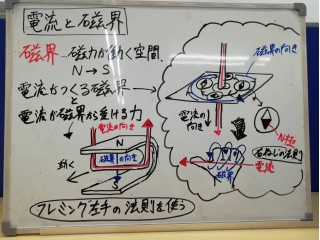 電流と磁界
磁界…磁力が働く空間
N→S
電流がつくる磁界
と
電流が磁界から受ける力
電流の向き
N
磁界の向き
動く
S
フレミング左手の法則を使う
磁界の向き
電流の向き
N極
右ねじの法則
電流
磁界